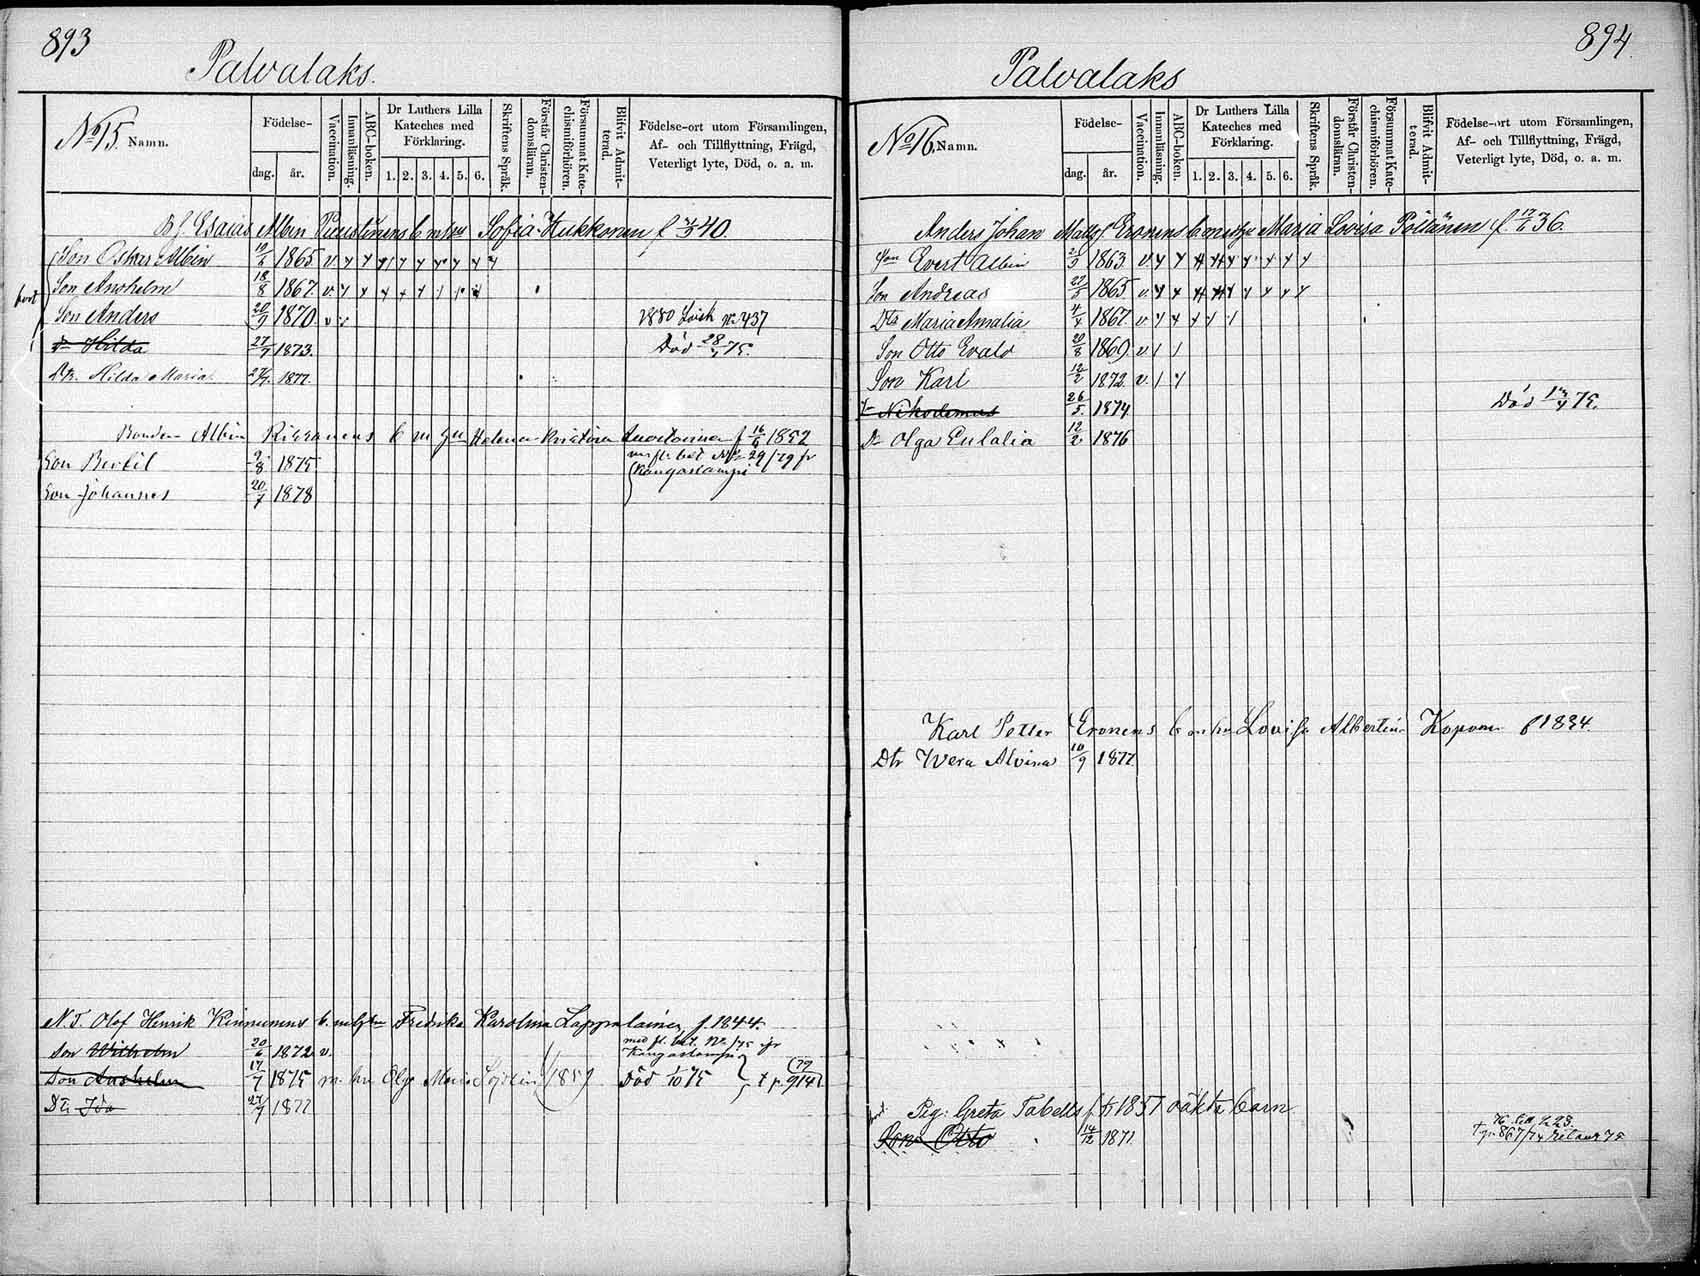 893
Palvalaks.
No 15. Namn.
Födelse-
dag. år.
Vaccination.
Innanläsning.
ABC-boken.
Dr Luthers Lilla
Kateches med
Förklaring.
1. 2. 3. 4. 5. 6.
Skriftens Språk.
Förstår Christen-
domsläran.
Försummat Kate-
chismiförhören.
Blifvit Admit-
terad.
Födelse-ort utom Församlingen,
Af- och Tillflyttning, Frägd,
Veterligt lyte, Död, o. a. m.
Esaias Albin b. m. hu Sofia Hukkonen f 40.
Son Oskar Albin 10/6 1865 v
Son Anshelm 18/8 1867. v.
bort
Son Anders 20/9 1870 v 1880 Lösk No 437
Dr Hilda 27/7 1873. Död 28/ 75.
Dtr. Hilda Maria 27/7 1877.
Bonden Albin b m hu Helena Kristina f 16/ 1852
Son Bertil 2/8 1875 29/79 fr
Kangaslampi
Son Johannes 20/7 1878
N.T. Olof Henrik Kinnunens b. m. Fredrika Karolina Lappalainen f. 1844.
Son Wilhelm 20/6 1872 v. med fl. bet. No /75 fr
Kangaslampi
Son Anshelm 17/7 1875 m. hu Olga Maria 1857 Död 1/10 75 t p. 914 79
Dtr Ida 27/7 1877
894.
Palvalaks
No 16. Namn.
Födelse-
dag. år.
Vaccination.
Innanläsning.
ABC-boken.
Dr Luthers Lilla
Kateches med
Förklaring.
1. 2. 3. 4. 5. 6.
Skriftens Språk.
Förstår Christen-
domsläran.
Försummat Kate-
chismiförhören.
Blifvit Admit-
terad.
Födelse-ort utom Församlingen,
Af- och Tillflyttning, Frägd,
Veterligt lyte, Död, o. a. m.
Anders Johan Eronens b. Maria Lovisa Pöllänen f. 17/6 36.
Son Evert Albin 21/9 1863 v
Son Andreas 27/5 1865 v.
Dtr Maria Amalia 4/4 1867. v
Son Otto Evald 20/8 1869 v
Son Karl 12/2 1872. v.
Nikodemus 26/5. 1874. Död 13/4 75.
Dr Olga Eulalia 12/2 1876
Karl Petter Eronens b m hu Lovisa Albertina f 1834.
Dtr Wera Alvina 10/9 1877.
Pig. Greta Tabells f. 1851 oäkta barn
Son Otto 14/12 1871.